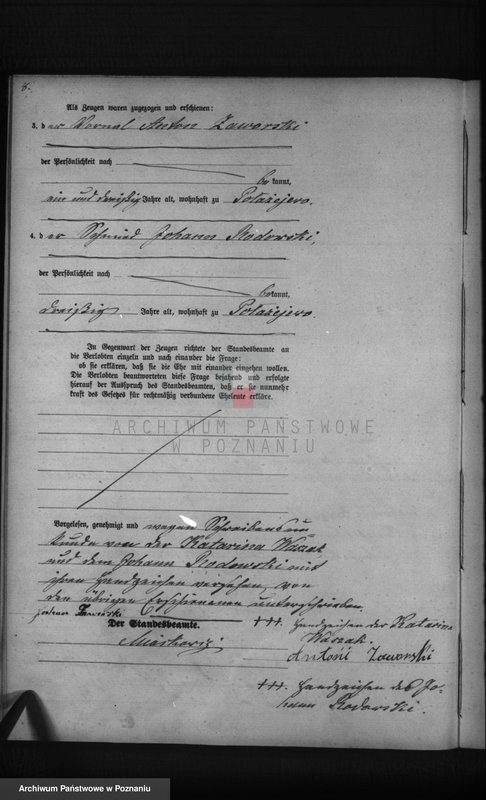 8.
Als Zeugen waren zugezogen und erschienen:
3. der Vornal Anton Zaworski
der Persönlichkeit nach
be kannt,
ein und dreißig Jahre alt, wohnhaft zu Polažejewo.
4. der Schmied Johann Rodowski,
der Persönlichkeit nach
be kannt,
dreißig Jahre alt, wohnhaft zu Polažejewo.
In Gegenwart der Zeugen richtete der Standesbeamte an
die Verlobten einzeln und nach einander die Frage:
ob sie erklären, daß sie die Ehe mit einander eingehen wollen.
Die Verlobten beantworteten diese Frage bejahend und erfolgte
hierauf der Ausspruch des Standesbeamten, daß er sie nunmehr
kraft des Gesetzes für rechtmäßig verbundene Eheleute erkläre.
ARCHIWUM PAŃSTWOWE
W POZNANIU
Vorgelesen, genehmigt und wegen Schreibensun-
kunde von der Katarina Waszak
und dem Johann Rodowski mit
ihren Handzeichen versehen, von
den übrigen Erschienenen unterschrieben.
Johann Zaworski
Der Standesbeamte.
+++. Handzeichen der Katarina
Waszak.
Antoni Zaworski
+++. Handzeichen des Jo-
hann Rodowski.
Archiwum Państwowe w Poznaniu